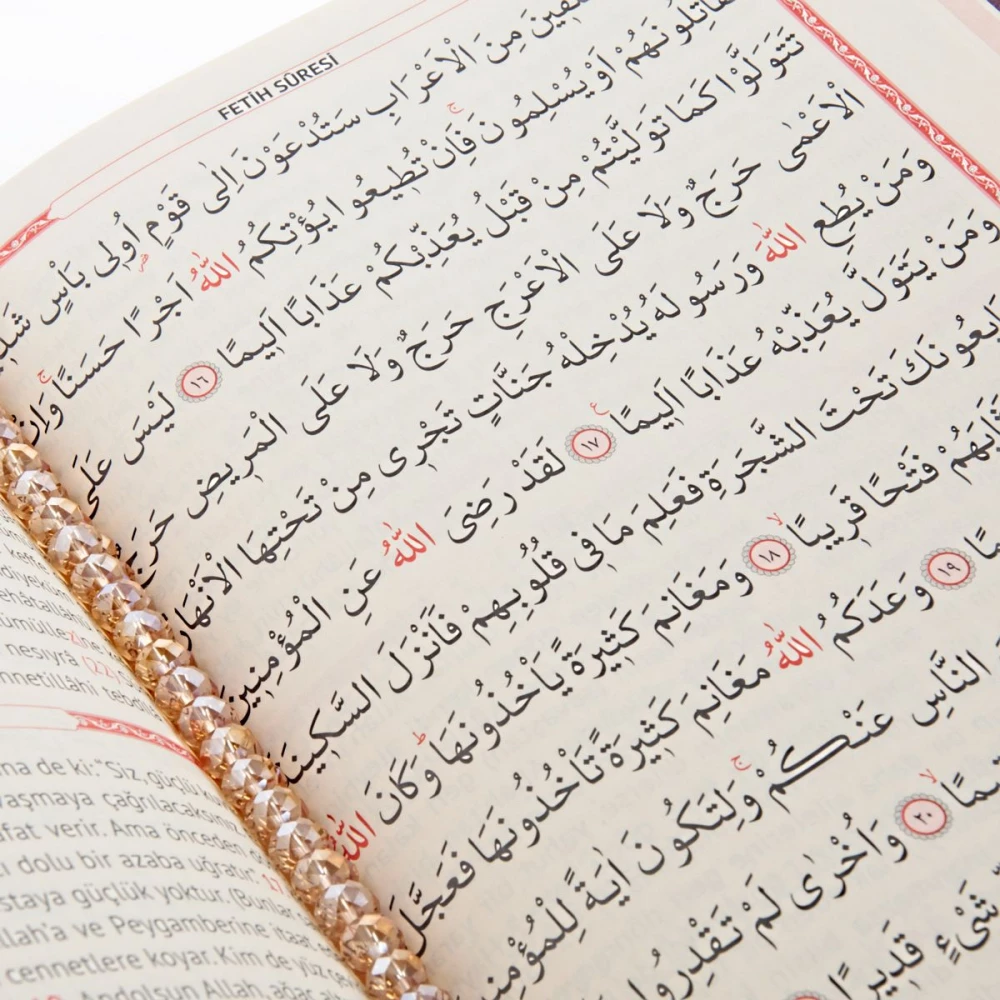 FETİH SÛRESİ
مِنَ الْاَعْرَابِ سَتُدْعَوْنَ اِلٰى قَوْمٍ اُو۬لى بَأْسٍ
اَوْ يُسْلِمُونَ فَاِنْ تُطيعُوا يُؤْتِكُمُ اللّٰهُ اَجْرًا حَسَنًا وَاِنْ
تَتَوَلَّوْا كَمَا تَوَلَّيْتُمْ مِنْ قَبْلُ يُعَذِّبْكُمْ عَذَابًا اَليمًا ١٦ لَيْسَ عَلَى
الْاَعْمٰى حَرَجٌ وَلَا عَلَى الْاَعْرَجِ حَرَجٌ وَلَا عَلَى الْمَريضِ حَرَجٌ
وَمَنْ يُطِعِ اللّٰهَ وَرَسُولَهُ يُدْخِلْهُ جَنَّاتٍ تَجْرى مِنْ تَحْتِهَا الْاَنْهَارُ
وَمَنْ يَتَوَلَّ يُعَذِّبْهُ عَذَابًا اَليمًا ١٧ لَقَدْ رَضِىَ اللّٰهُ عَنِ الْمُؤْمِنينَ
تَحْتَ الشَّجَرَةِ فَعَلِمَ مَا فى قُلُوبِهِمْ فَاَنْزَلَ السَّكينَةَ
فَتْحًا قَريبًا ١٨ وَمَغَانِمَ كَثيرَةً يَأْخُذُونَهَا وَكَانَ اللّٰهُ
١٩ وَعَدَكُمُ اللّٰهُ مَغَانِمَ كَثيرَةً تَأْخُذُونَهَا فَعَجَّلَ
النَّاسِ عَنْكُمْ وَلِتَكُونَ اٰيَةً لِلْمُؤْمِنينَ
٢٠ وَاُخْرٰى لَمْ تَقْدِرُوا
شَىْءٍ قَديرًا
nesıyrâ (22)
tebd
de ki: "Siz, güçlü
çağrılacaksınız
verir. Ama önceden
dolu bir azaba uğratır."
güçlük yoktur. (Bunlar
ve Peygamberine itaat
cennetlere koyar. Kim de yüz
Andolsun Allah, ağaç